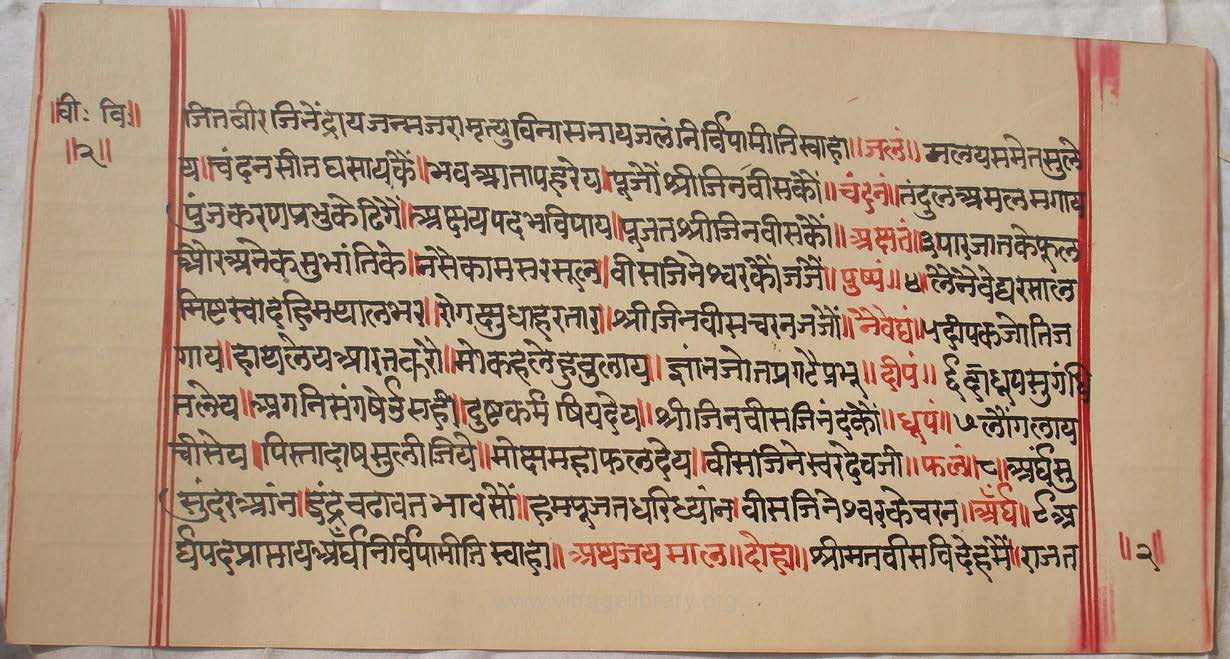 ॥वी॰ वि॰॥
॥२॥
जितबीरजिनेंद्रायजन्मजरामृत्युविनासनायजलंनिर्विपामीतिस्वाहा॥जलं॥मलयसमेतसुले
य॥चंदनसीतघसायकैं॥भवआतापहरेय॥पूजौंश्रीजिनवीसकौं॥चंदनं॥तंदुलअमलमगाय
पुंजकरणप्रभुकेढिगैं॥अक्षयपदभविपाय॥पूजतश्रीजिनवीसकौं॥अक्षतं॥३पारजातकेफूल
औरअनेकसुभांतिके॥नसेकामसरसूल॥वीसजिनेश्वरकौंजजौं॥पुष्पं॥४॥लेनैवेद्यरसाल
मिष्टस्वादहिमथालभर॥रोगक्षुधाहरतार॥श्रीजिनवीसचरनजजौं॥नैवेद्यं॥५दीपकजोतिज
गाय॥हाथलेयआरतकरो॥मोकहलेहुवुलाय॥ज्ञांनजोतप्रगटैप्रभू॥दीपं॥६॥धूपसुगंधि
नलेय॥अगनिसंगषेउंसही॥दुष्टकर्मषियदेय॥श्रीजिनवीसजिनंदकौं॥धूपं॥७लौंगलाय
चीसेय॥पिस्तादाषसुलीजिये॥मोक्षमहाफलदेय॥वीसजिनेस्वरदेवजी॥फलं॥८॥अर्घसु
सुंदरआंन॥इंद्रचढावतभावसौं॥हमपूजतधरिध्यांन॥वीसजिनेश्वरकेचरन॥अर्घं॥९अ
र्घपदप्राप्तायअर्घंनिर्विपामीतिस्वाहा॥अथजयमाल॥दोहा॥श्रीमतवीसविदेहमैं॥राजत
॥२॥
www.vitragelibrary.org